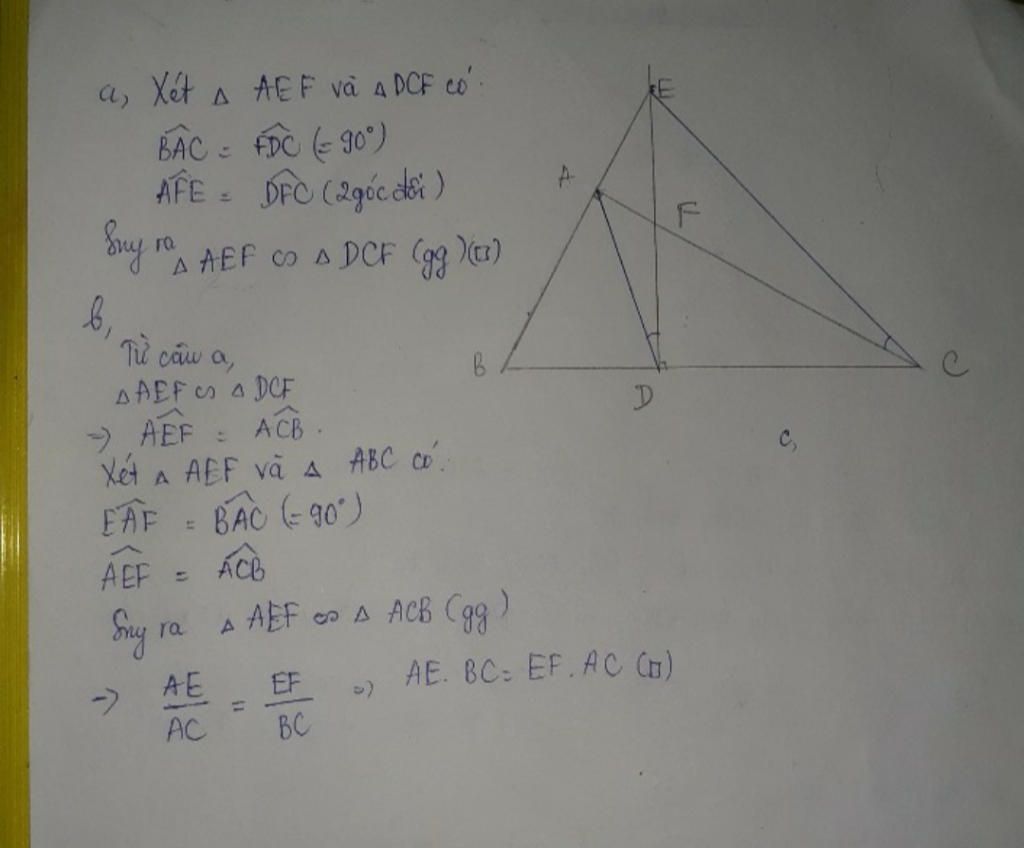 a, Xét △ AEF và △ DCF có:
BAC^ = FDC^ (= 90°)
AFE^ = DFC^ (2 góc đối)
Suy ra △ AEF ∽ △ DCF (gg) (□)
b,
Từ câu a,
△ AEF ∽ △ DCF
=) AEF^ = ACB^.
Xét △ AEF và △ ABC có:
EAF^ = BAC^ (= 90°)
AEF^ = ACB^
Suy ra △ AEF ∽ △ ACB (gg)
=) AE/AC = EF/BC =) AE. BC = EF. AC (□)
E
A
F
B
D
C
c,